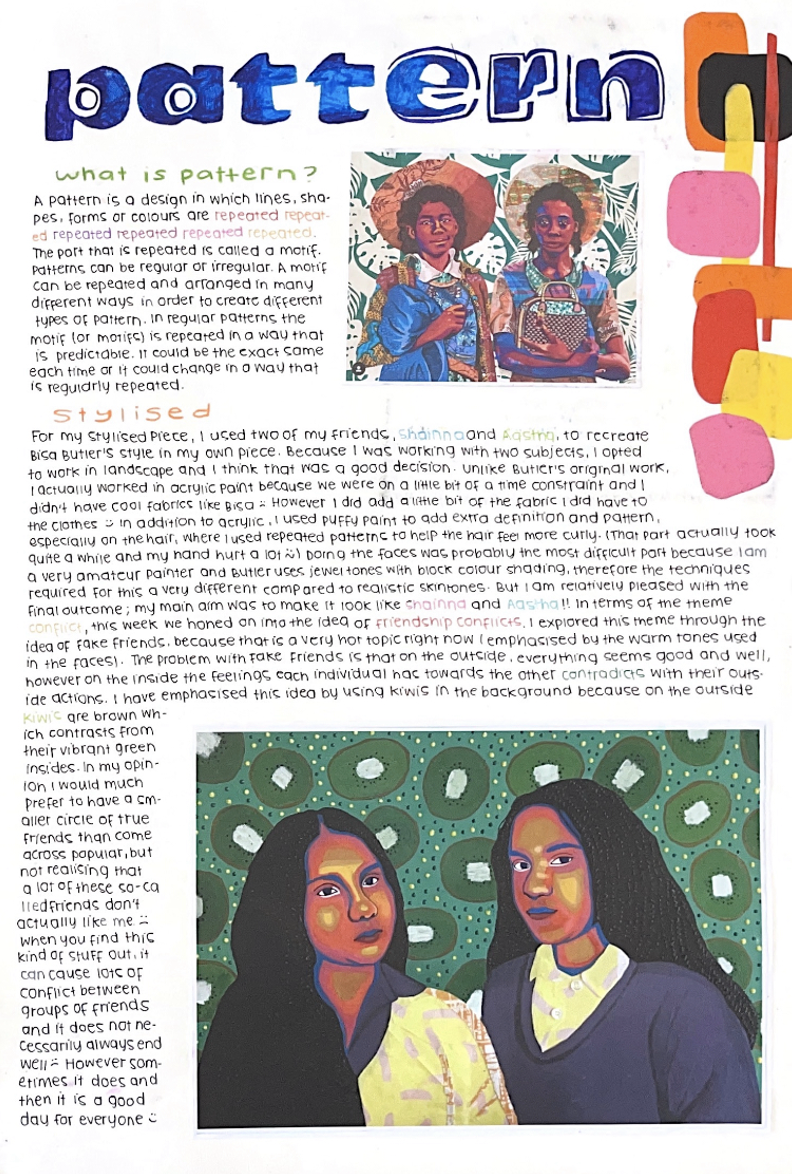 pattern
what is pattern?
A pattern is a design in which lines, sha-
pes, forms or colours are repeated repeat-
ed repeated repeated repeated repeated.
The part that is repeated is called a motif.
Patterns can be regular or irregular. A motif
can be repeated and arranged in many
different ways in order to create different
types of pattern. In regular patterns the
motif (or motifs) is repeated in a way that
is predictable. It could be the exact same
each time or it could change in a way that
is regularly repeated.
stylised
For my stylised piece, I used two of my friends, Shainna and Aastha, to recreate
Bisa Butler's style in my own piece. Because I was working with two subjects, I opted
to work in landscape and I think that was a good decision. Unlike Butler's original work,
I actually worked in acrylic paint because we were on a little bit of a time constraint and I
didn't have cool fabrics like Bisa :( However I did add a little bit of the fabric I did have to
the clothes :) In addition to acrylic, I used puffy paint to add extra definition and pattern,
especially on the hair, where I used repeated patterns to help the hair feel more curly. (That part actually took
quite a while and my hand hurt a lot :)) Doing the faces was probably the most difficult part because I am
a very amateur painter and Butler uses jewel tones with block colour shading, therefore the techniques
required for this a very different compared to realistic skintones. But I am relatively pleased with the
final outcome; my main aim was to make it look like Shainna and Aastha!! In terms of the theme
conflict, this week we honed on into the idea of friendship conflicts. I explored this theme through the
idea of fake friends, because that is a very hot topic right now (emphasised by the warm tones used
in the faces). The problem with fake friends is that on the outside, everything seems good and well,
however on the inside the feelings each individual has towards the other contradicts with their outs-
ide actions. I have emphasised this idea by using kiwis in the background because on the outside
kiwis are brown wh-
ich contrasts from
their vibrant green
insides. In my opin-
ion I would much
prefer to have a sm-
aller circle of true
friends than come
across popular, but
not realising that
a lot of these so-ca
lled friends don't
actually like me :(
When you find this
kind of stuff out, it
can cause lots of
conflict between
groups of friends
and it does not ne-
cessarily always end
well :( However som-
etimes it does and
then it is a good
day for everyone :)